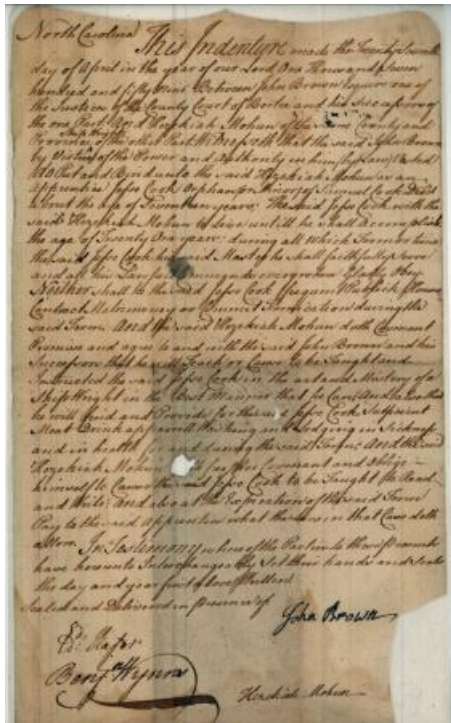 North Carolina This Indenture made the Twenty Seventh
day of April in the year of our Lord One Thousand Seven
hundred and fifty Nine Between John Brown Esquire one of
the Justices of the County Court of Bertie and his Successors of
the one Part And Hezekiah Mohun of the same County and
Ship Wright
Province of the other Part Witnesseth that the said John Brown
by Virtue of the Power and Authority in him by Law
Put and Bind unto the said Hezekiah Mohun as an
Apprentice Jesse Cook Orphan of Cook
about the age of Seventeen years The said Jesse Cook with the
said Hezekiah Mohun to Live untill he shall accomplish
the age of Twenty One years during all which Term or time
the said Jesse Cook his said Master he shall faithfully serve
and all his Lawful Commands every where Gladly Obey
Neither shall he the said Jesse Cook
Contract Matrimony or Commit Fornication during the
said Term And the said Hezekiah Mohun doth Covenant
Promise and agree to and with the said John Brown and his
Successors that he will Teach or Cause to be Taught and
Instructed the said Jesse Cook in the art and Mistery of a
Ship Wright in the Best Manner that he Can And also that
he will find and Provide for the said Jesse Cook Sufficient
Meat Drink apparell Washing and Lodging in Sickness
and in health for and during the said Term And the said
Hezekiah Mohun doth further Covenant and Oblige
himself to Cause the said Jesse Cook to be Taught to Read
and Write And also at the Expiration of the said Term
Pay to the said Apprentice what the Law in that Case doth
allow In Testimony whereof the Parties to these presents
have hereunto Interchangeably Set their hands and Seals
the day and year first above Written
Sealed and Delivered in presence of
John Brown
Benj Wynns
Hezekiah Mohun